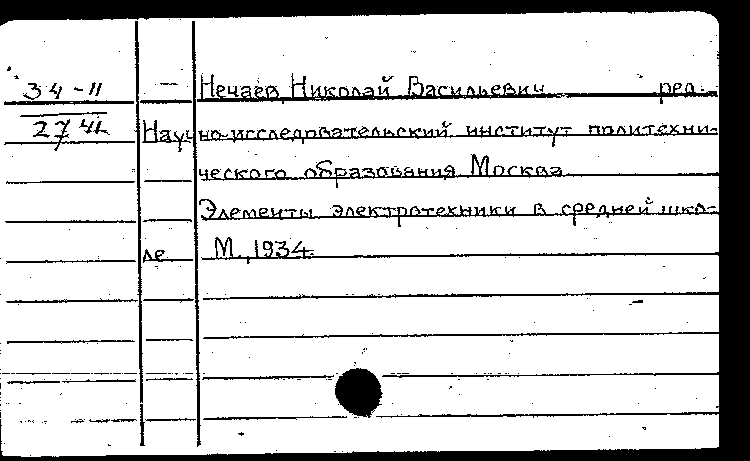 34-11 — Нечаев, Николай Васильевич ред.
2741 Научно-исследовательский институт политехни-
ческого образования Москва
Элементы электротехники в средней шко-
ле М., 1934.